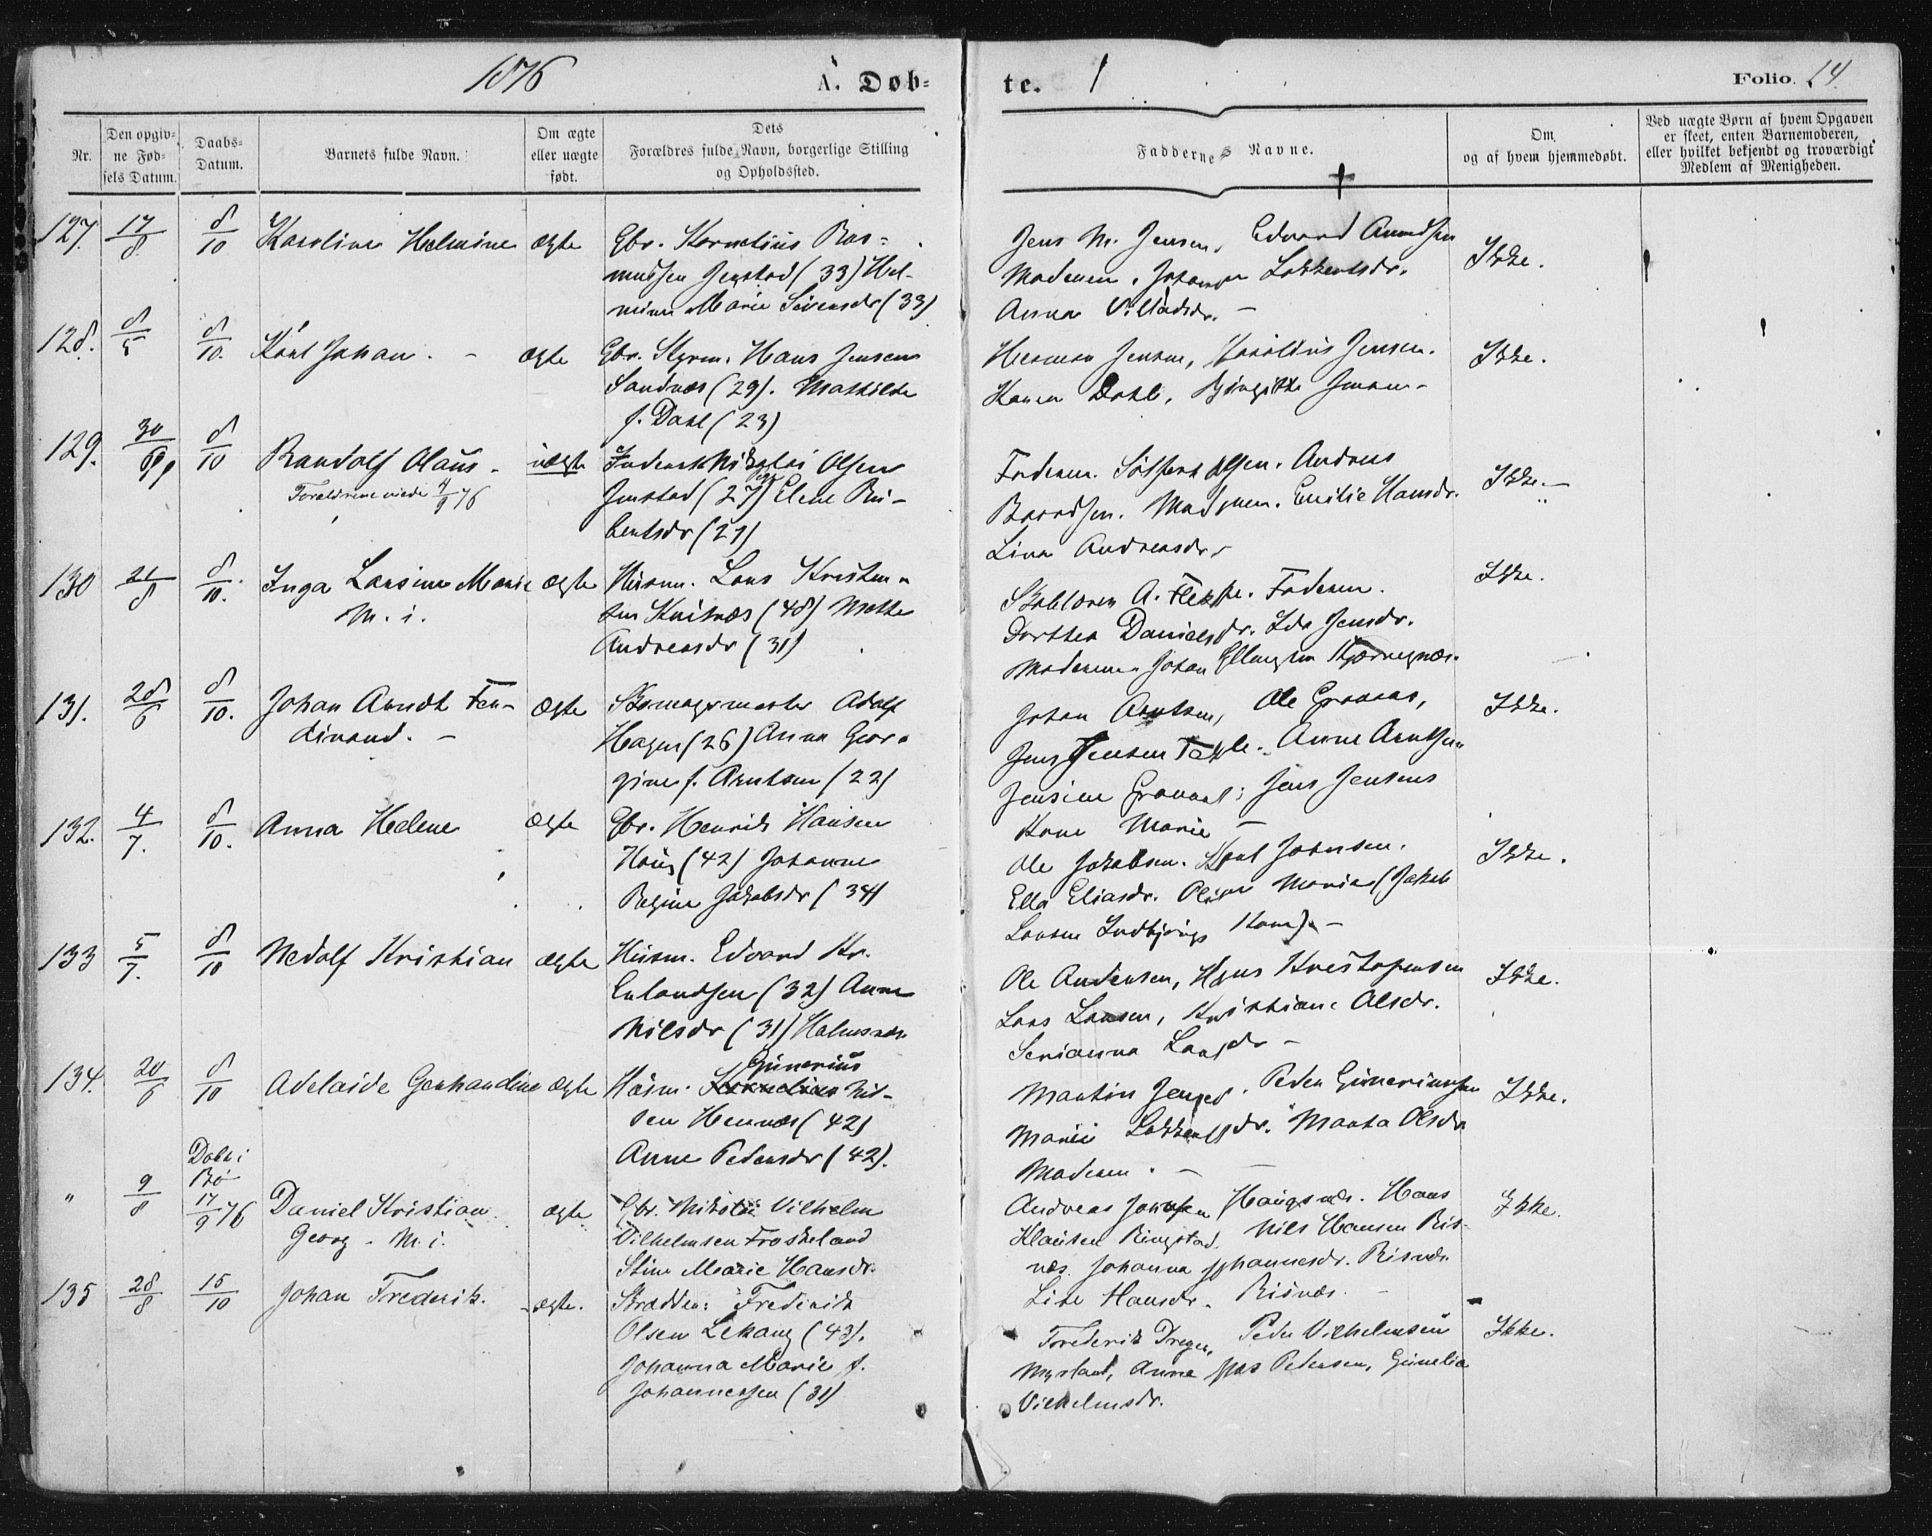 1876
A. Døb=
te.
Folio. 14.
Nr.
Den opgiv-
ne Fød-
sels Datum.
Daabs-
Datum.
Barnets fulde Navn.
Om ægte
eller uægte
født.
Dets
Forældres fulde Navn, borgerlige Stilling
og Opholdssted.
Faddernes Navne.
Om
og af hvem hjemmedøbt.
Ved uægte Børn af hvem Opgaven
er skeet, enten Barnemoderen,
eller hvilket bekjendt og troværdigt
Medlem af Menigheden.
127. 17/8 8/10 Karoline Helmine ægte Gbr. Kornelius Ras-
mussen Jenstad (33) Hel-
mine Marie Sivertsdr (33)
Jens M. Jensen, Edvard Arndsen
Moderen, Lokkertsdr.
Anna Villadsdr. –
Ikke.
128. 8/5 8/10. Karl Johan. – ægte Gbr. Styrm. Hans Jensen
Sandnæs (29). Mathilde
f. Dahl (23)
Herman Jensen, Haraldus Jensen.
Hanna Dahl, Birgitte Jensen –
Ikke.
129. 30/ 8/10 Randolf Olaus – uægte Nikolai Olsen
Forældrene viede 4/9 76
Jenstad (27) Elene Ru-
bertsdr (21)
Faderen. Olsen. Andreas
Baardsen. Moderen. Emilie Hansdr.
Lina Andreasdr
Ikke. –
130 21/8 8/10. Inga Larsine Marie ægte Husm. Lars Kristen-
M. i.
sen Kvitnæs (48) Mette
Andreasdr (31)
A. Fleksse. Faderen.
Dorthea Danielsdr. Ida Jensdr.
Moderen. Johan Ellingsen
Ikke.
131. 28/6 8/10. Johan Arndt Fer- ægte Skomagermester Adolf
dinand. –
Hagen (26) Anna Geor-
gine f. Arntsen (22)
Johan Arntsen, Ole Gravaas,
Jens Jensen Anne Arntsen
Jensine Jens Jensens
Kone Marie –
Ikke.
132. 4/7. 8/10. Anna Helene ægte Gbr. Henrik Hansen
Haug (42) Johanne
Regine Jakobsdr (34)
Ole Jakobsen. Johnsen.
Ella Eliasdr. Marie (Jakob
Larsen Indbjörgs Kone). –
Ikke.
133 5/7. 8/10 Nedolf Kristian ægte Husm. Edvard Kr.
Erlandsen (32) Anne
Nilsdr (31) Holmsnæs
Ole Andersen, Hans Kristofersen
Lars Larsen, Kristiane Olsdr.
Serianna Larsdr –
Ikke.
134. 20/6 8/10 Adelaide Gerhardine ægte Husm. Kornelius Günerius Nil-
sen Hennæs (42)
Anne Pedersdr (42).
Martin Jensen. Peder Günerinssen
Marie Lokkertsdr. Marta Olsdr
Moderen. –
Ikke.
" 9/8 Døbt i
Bø
17/9 76 Daniel Kristian ægte Gbr. Nikolai Vilhelm
Georg – M. i.
Vilhelmsen Froskeland
Stine Marie Hansdr.
Andreas Johnsen Haugsnæs. Hans
Klausen Ringstad, Nils Hansen Ris-
næs. Johanna Johannesdr. Risnæs
Lise Hansdr. Risnæs.
Ikke.
135 28/8 15/10 Johan Frederik. ægte. Skrædder: Frederik
Olsen Lekang (43).
Johanna Marie f.
Johannessen (31)
Frederik Dreyer, Peder Vilhelmsen
Myrland, Anne Petersen, Gunelia
Vilhelmsdr.
Ikke.